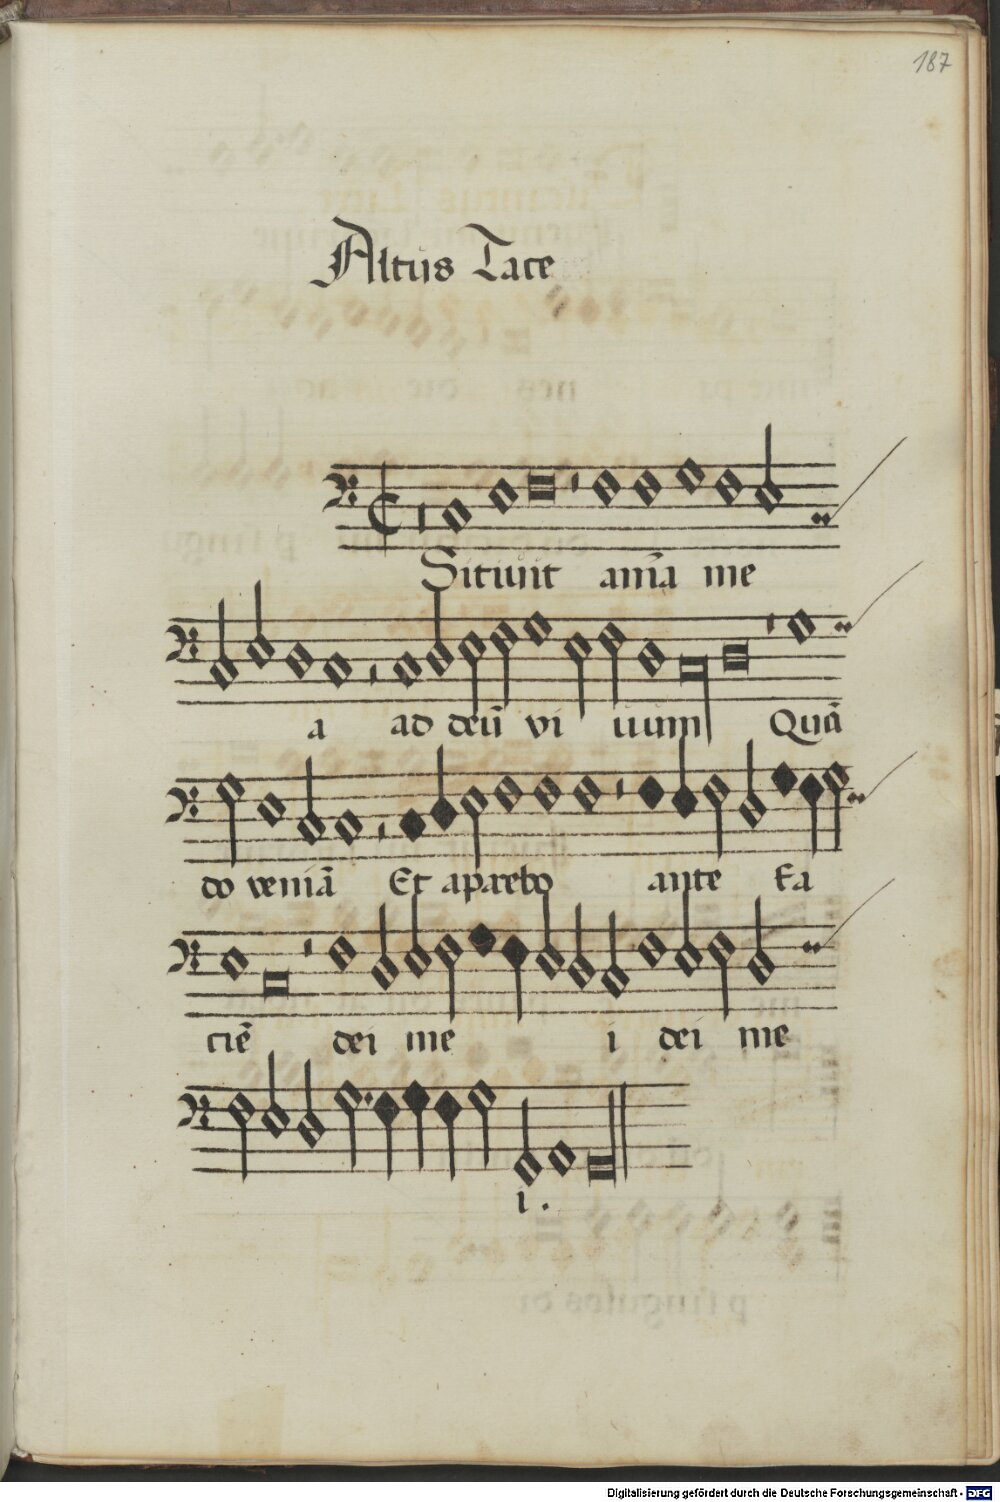 187
Altus Tace
Sitiuit aĩa me
a ad deũ vi uum Quã
do veniã Et aparebo ante fa
ciẽ dei me i dei me
i.
Digitalisierung gefördert durch die Deutsche Forschungsgemeinschaft - DFG